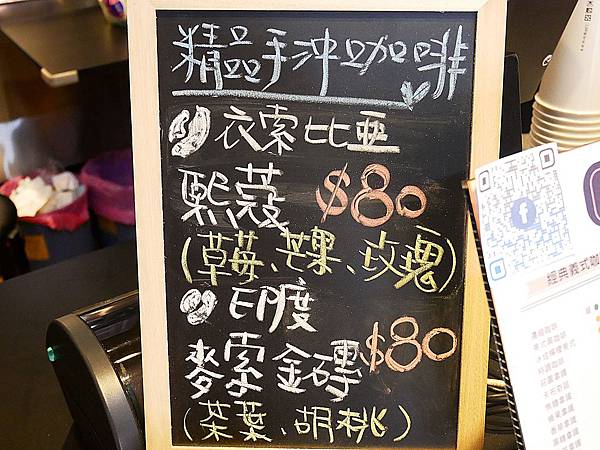 精品手沖咖啡
① 衣索比亞
熙蔻 $80
(草莓、芒果、玫瑰)
② 印度
麥索金磚 $80
(茶葉、胡桃)
經典義式咖